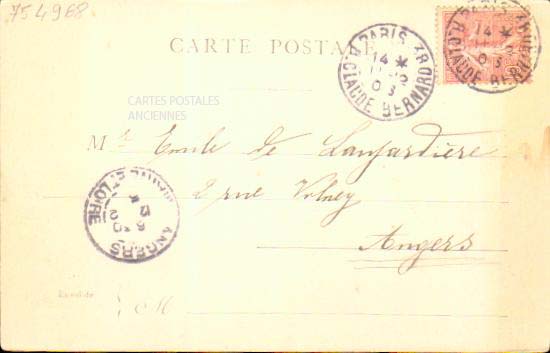 754968
CARTE POSTALE
PARIS 38
R. CLAUDE BERNARD
14 *
03
PARIS 38
R. CLAUDE BERNARD
14 *
03
CARTES POSTALES
ANCIENNES
Mr Emile de Lanjardière
2 rue Volney
Angers
MAINE ET LOIRE
ANGERS
M